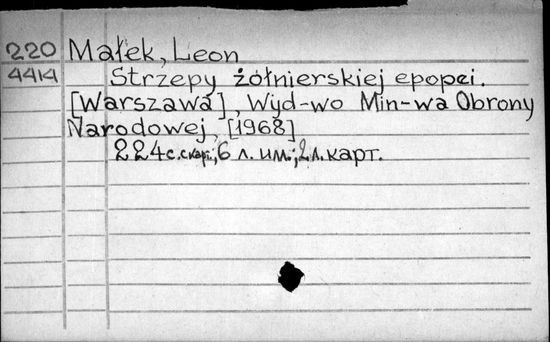 220 Małek, Leon
4414 Strzępy żołnierskiej epopei.
[Warszawa], Wyd-wo Min-wa Obrony
Narodowej, [1968]
224 с. с карт.; 6 л. ил.; 2 л. карт.